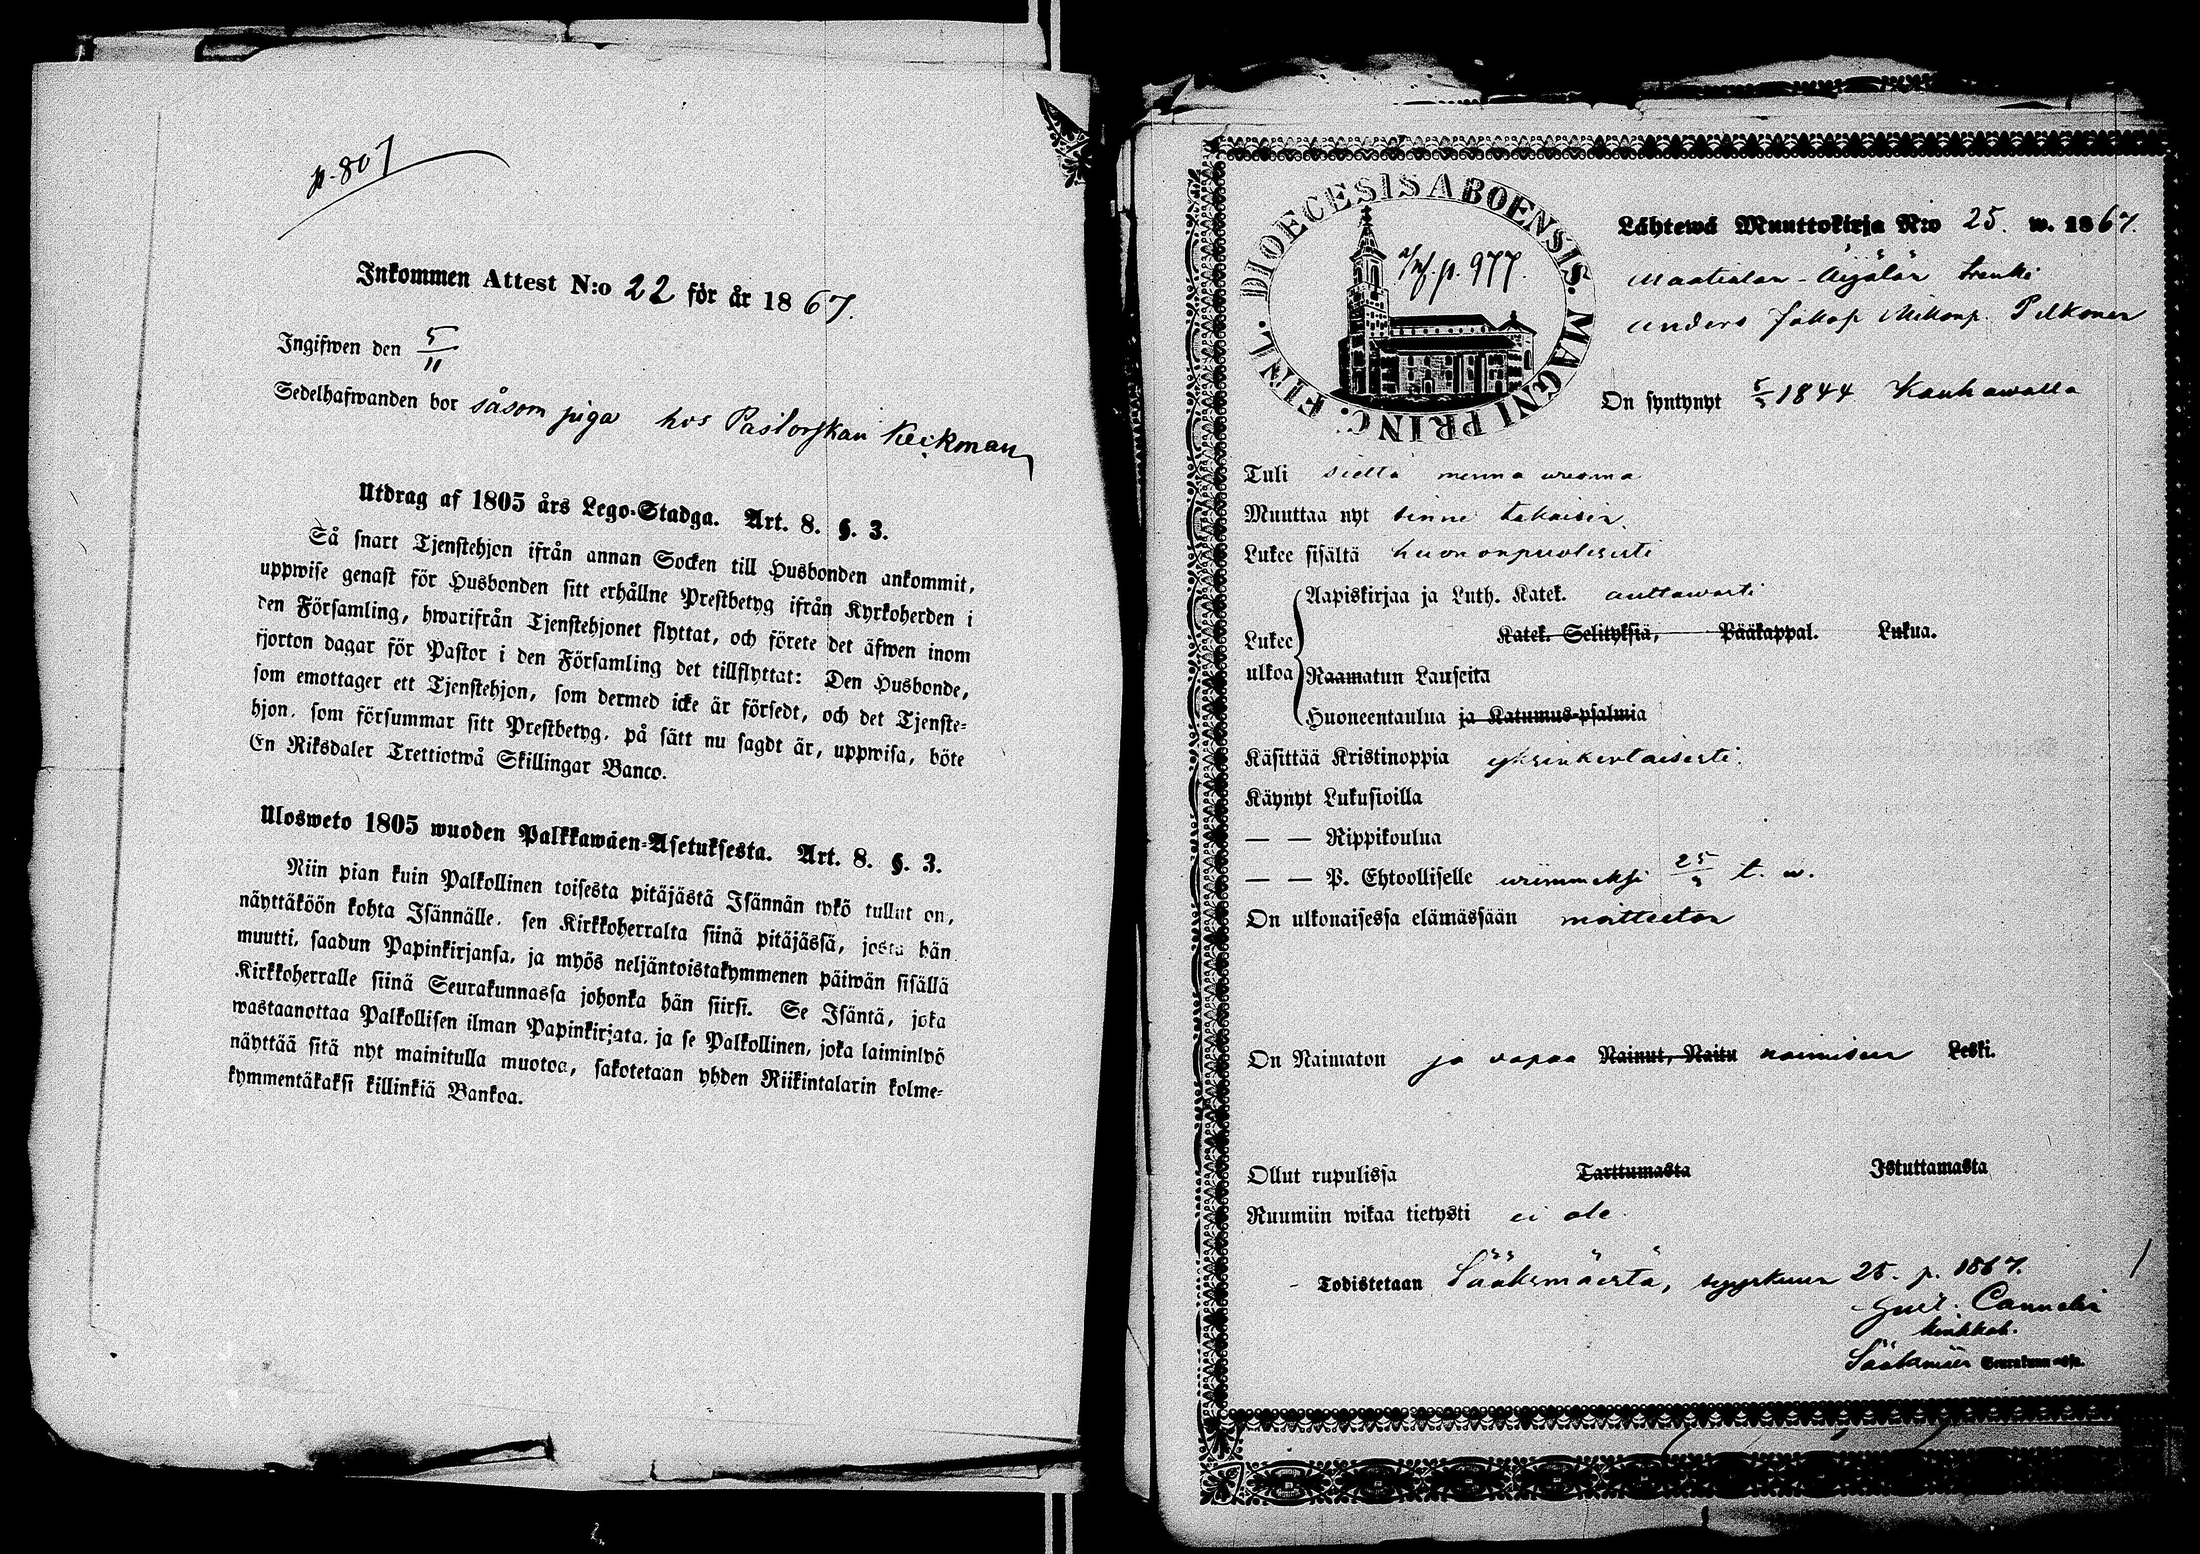 p. 807
Inkommen Attest N:o 22 för år 1867.
Ingifwen den 5/11
Sedelhafwanden bor såsom piga hos Pastorskan Keckman
Utdrag af 1805 års Lego-Stadga. Art. 8. §. 3.
Så snart Tjenstehjon ifrån annan Socken till Husbonden ankommit,
uppwise genast för Husbonden sitt erhållne Prestbetyg ifrån Kyrkoherden i
den Församling, hwarifrån Tjenstehjonet flyttat, och förete det äfwen inom
fjorton dagar för Pastor i den Församling det tillflyttat: Den Husbonde,
som emottager ett Tjenstehjon, som dermed icke är försedt, och det Tjenste-
hjon, som försummar sitt Prestbetyg, på sätt nu sagdt är, uppwisa, böte
En Riksdaler Trettiotwå Skillingar Banco.
Ulosweto 1805 wuoden Palkkawäen-Asetuksesta. Art. 8. §. 3.
Niin pian kuin Palkollinen toisesta pitäjästä Isännän tykö tullut on,
näyttäköön kohta Isännälle, sen Kirkkoherralta siinä pitäjässä, josta hän
muutti, saadun Papinkirjansa, ja myös neljäntoistakymmenen päiwän sisällä
Kirkkoherralle siinä Seurakunnassa johonka hän siirsi. Se Isäntä, joka
wastaanottaa Palkollisen ilman Papinkirjata, ja se Palkollinen, joka laiminlyö
näyttää sitä nyt mainitulla muotoa, sakotetaan yhden Riikintalarin kolme-
kymmentäkaksi killinkiä Bankoa.
DIOECESIS ABOENSIS. MAGNI PRINC. FINL.
p. 977.
Lähtewä Muuttokirja N:o 25. w. 1867.
Maatialan-Äijälän trenki
Anders Jakop Mikonp. Pelkonen
On syntynyt 5/3 1844 Kauhawalla
Tuli sieltä menna wuonna
Muuttaa nyt sinne takaisin.
Lukee sisältä huononpuolisesti
Aapiskirjaa ja Luth. Katek. auttawasti
Lukee ulkoa
Katek. Selityksiä, Pääkappal. Lukua.
Raamatun Lauseita
Huoneentaulua ja Katumus-psalmia
Käsittää Kristinoppia yksinkertaisesti.
Käynyt Lukusioilla
— — Rippikoulua
— — P. Ehtoolliselle wiimmeksi 25/3 t. w.
On ulkonaisessa elämässään moitteeton
On Naimaton ja vapaa Nainut, Naitu naimiseen Leski.
Ollut rupulissa Tarttumasta Istuttamasta
Ruumiin wikaa tietysti ei ole.
Todistetaan Sääksmäestä, syyskuun 25. p. 1867.
Gust. Cannelin
kirkkoh.
Sääksmäen Seurakunnassa.